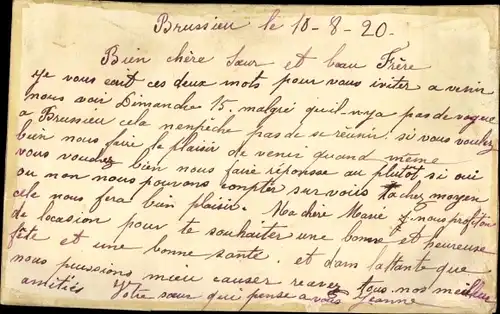 Brussieu le 10-8-20.
Bien chère Sœur et beau Frère
Je vous ecrit ces deux mots pour vous inviter a venir
nous voir Dimanche 15. malgré qu'il n'ya pas de vogue
a Brussieu cela nenpêche pas de se réunir. si vous voulez
bien nous faire le plaisir de venir quand même
vous voudrez bien nous faire réponsse au plutôt si oui
ou non nous pouvons compter sur vous tachez moyen
cela nous fera bien plaisir. Ma chère Marie nous profiton
de locasion pour te souhaiter une bonne et heureuse
fête et une bonne santé. et dans lattante que
nous puissions mieu causer recevez tous nos meilleures
amitiés Votre sœur qui pense a vous Jeanne